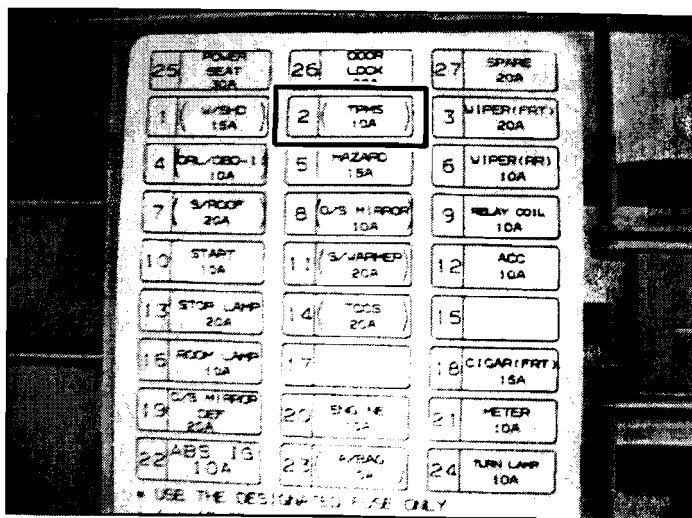 25 POWER SEAT 30A
26 DOOR LOCK
27 SPARE 20A
1 (W/SHD) 15A
2 (TPMS) 10A
3 WIPER(FRT) 20A
4 (DRL/OBD-II) 10A
5 HAZARD 15A
6 WIPER(RR) 10A
7 (S/ROOF) 20A
8 (O/S MIRROR) 10A
9 RELAY COIL 10A
10 START 10A
11 (S/WARMER) 20A
12 ACC 10A
13 STOP LAMP 20A
14 (TCCS) 20A
15
16 ROOM LAMP 10A
17
18 CIGAR(FRT) 15A
19 O/S MIRROR DEF
20 ENGINE 10A
21 METER 10A
22 ABS IG 10A
23 A/BAG
24 TURN LAMP 10A
* USE THE DESIGNATED FUSE ONLY